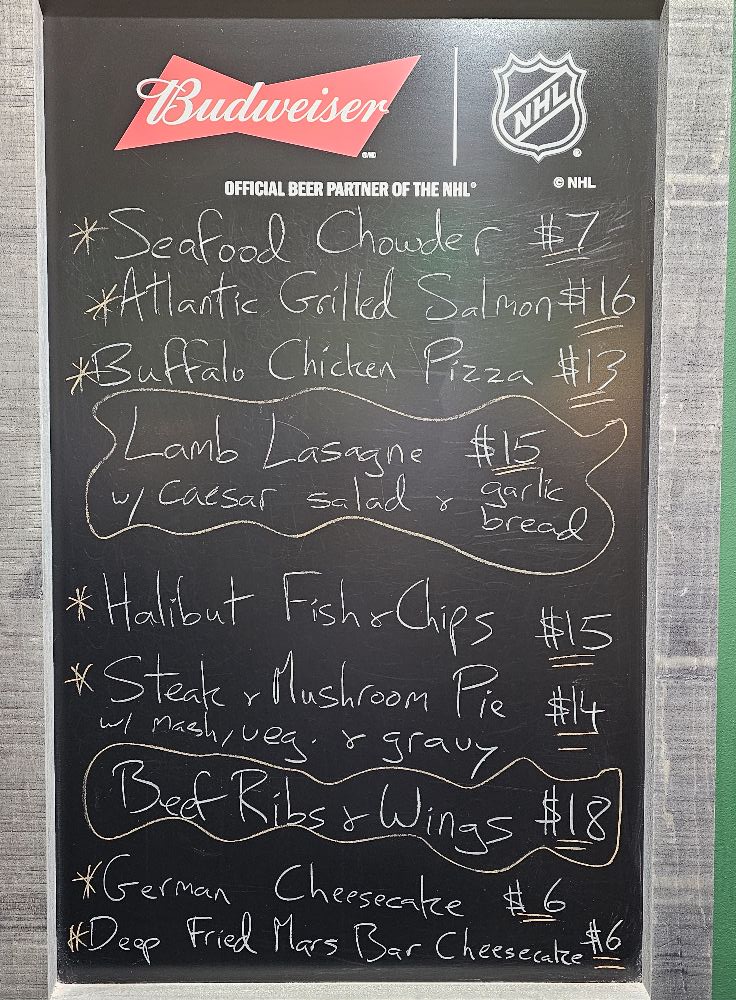 Budweiser
NHL
OFFICIAL BEER PARTNER OF THE NHL®
© NHL
* Seafood Chowder $7
* Atlantic Grilled Salmon $16
* Buffalo Chicken Pizza $13
Lamb Lasagne $15
w/ caesar salad & garlic
bread
* Halibut Fish & Chips $15
* Steak & Mushroom Pie $14
w/ mash/veg. & gravy
Beef Ribs & Wings $18
* German Cheesecake $6
* Deep Fried Mars Bar Cheesecake $6